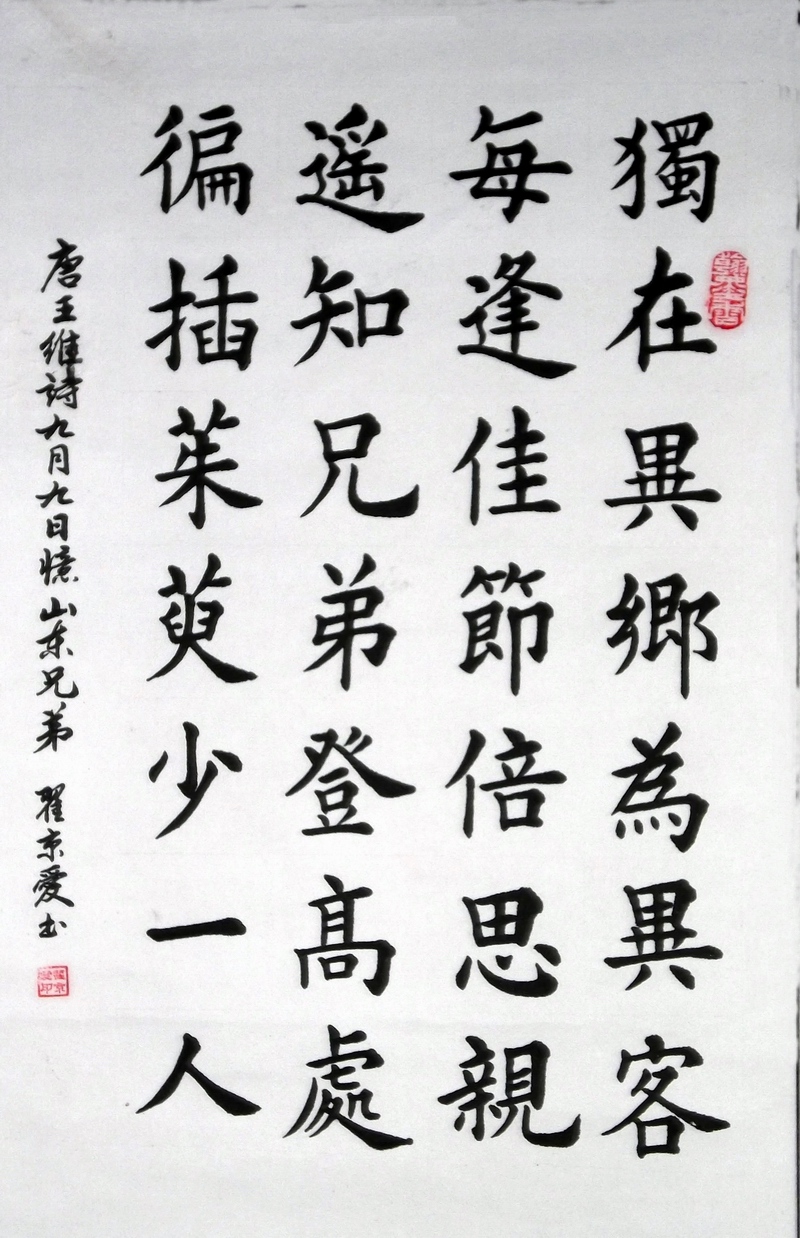 獨在異鄉為異客
每逢佳節倍思親
遥知兄弟登高處
徧插茱萸少一人
唐王維詩九月九日憶山东兄弟 瞿京愛书